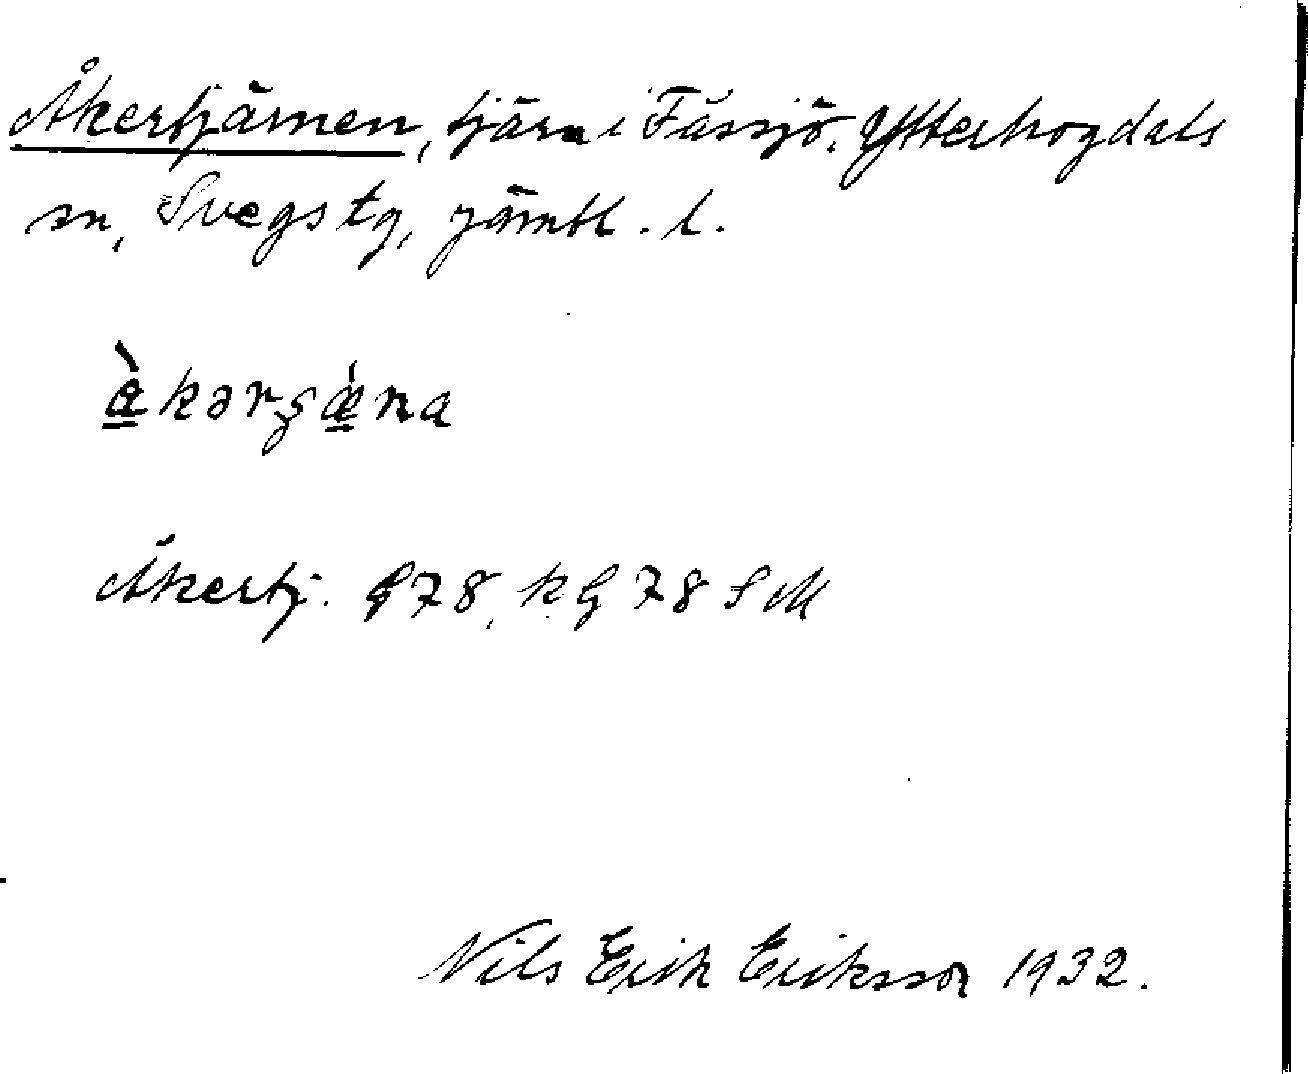 Åkertjärnen, tjärn i Fåssjö, Ytterhogdals
sn, Svegs tg, Jämtl. l.
àkərʂæ̀na
Åkertj. G78, k G 78 S M
Nils Erik Eriksson 1932.